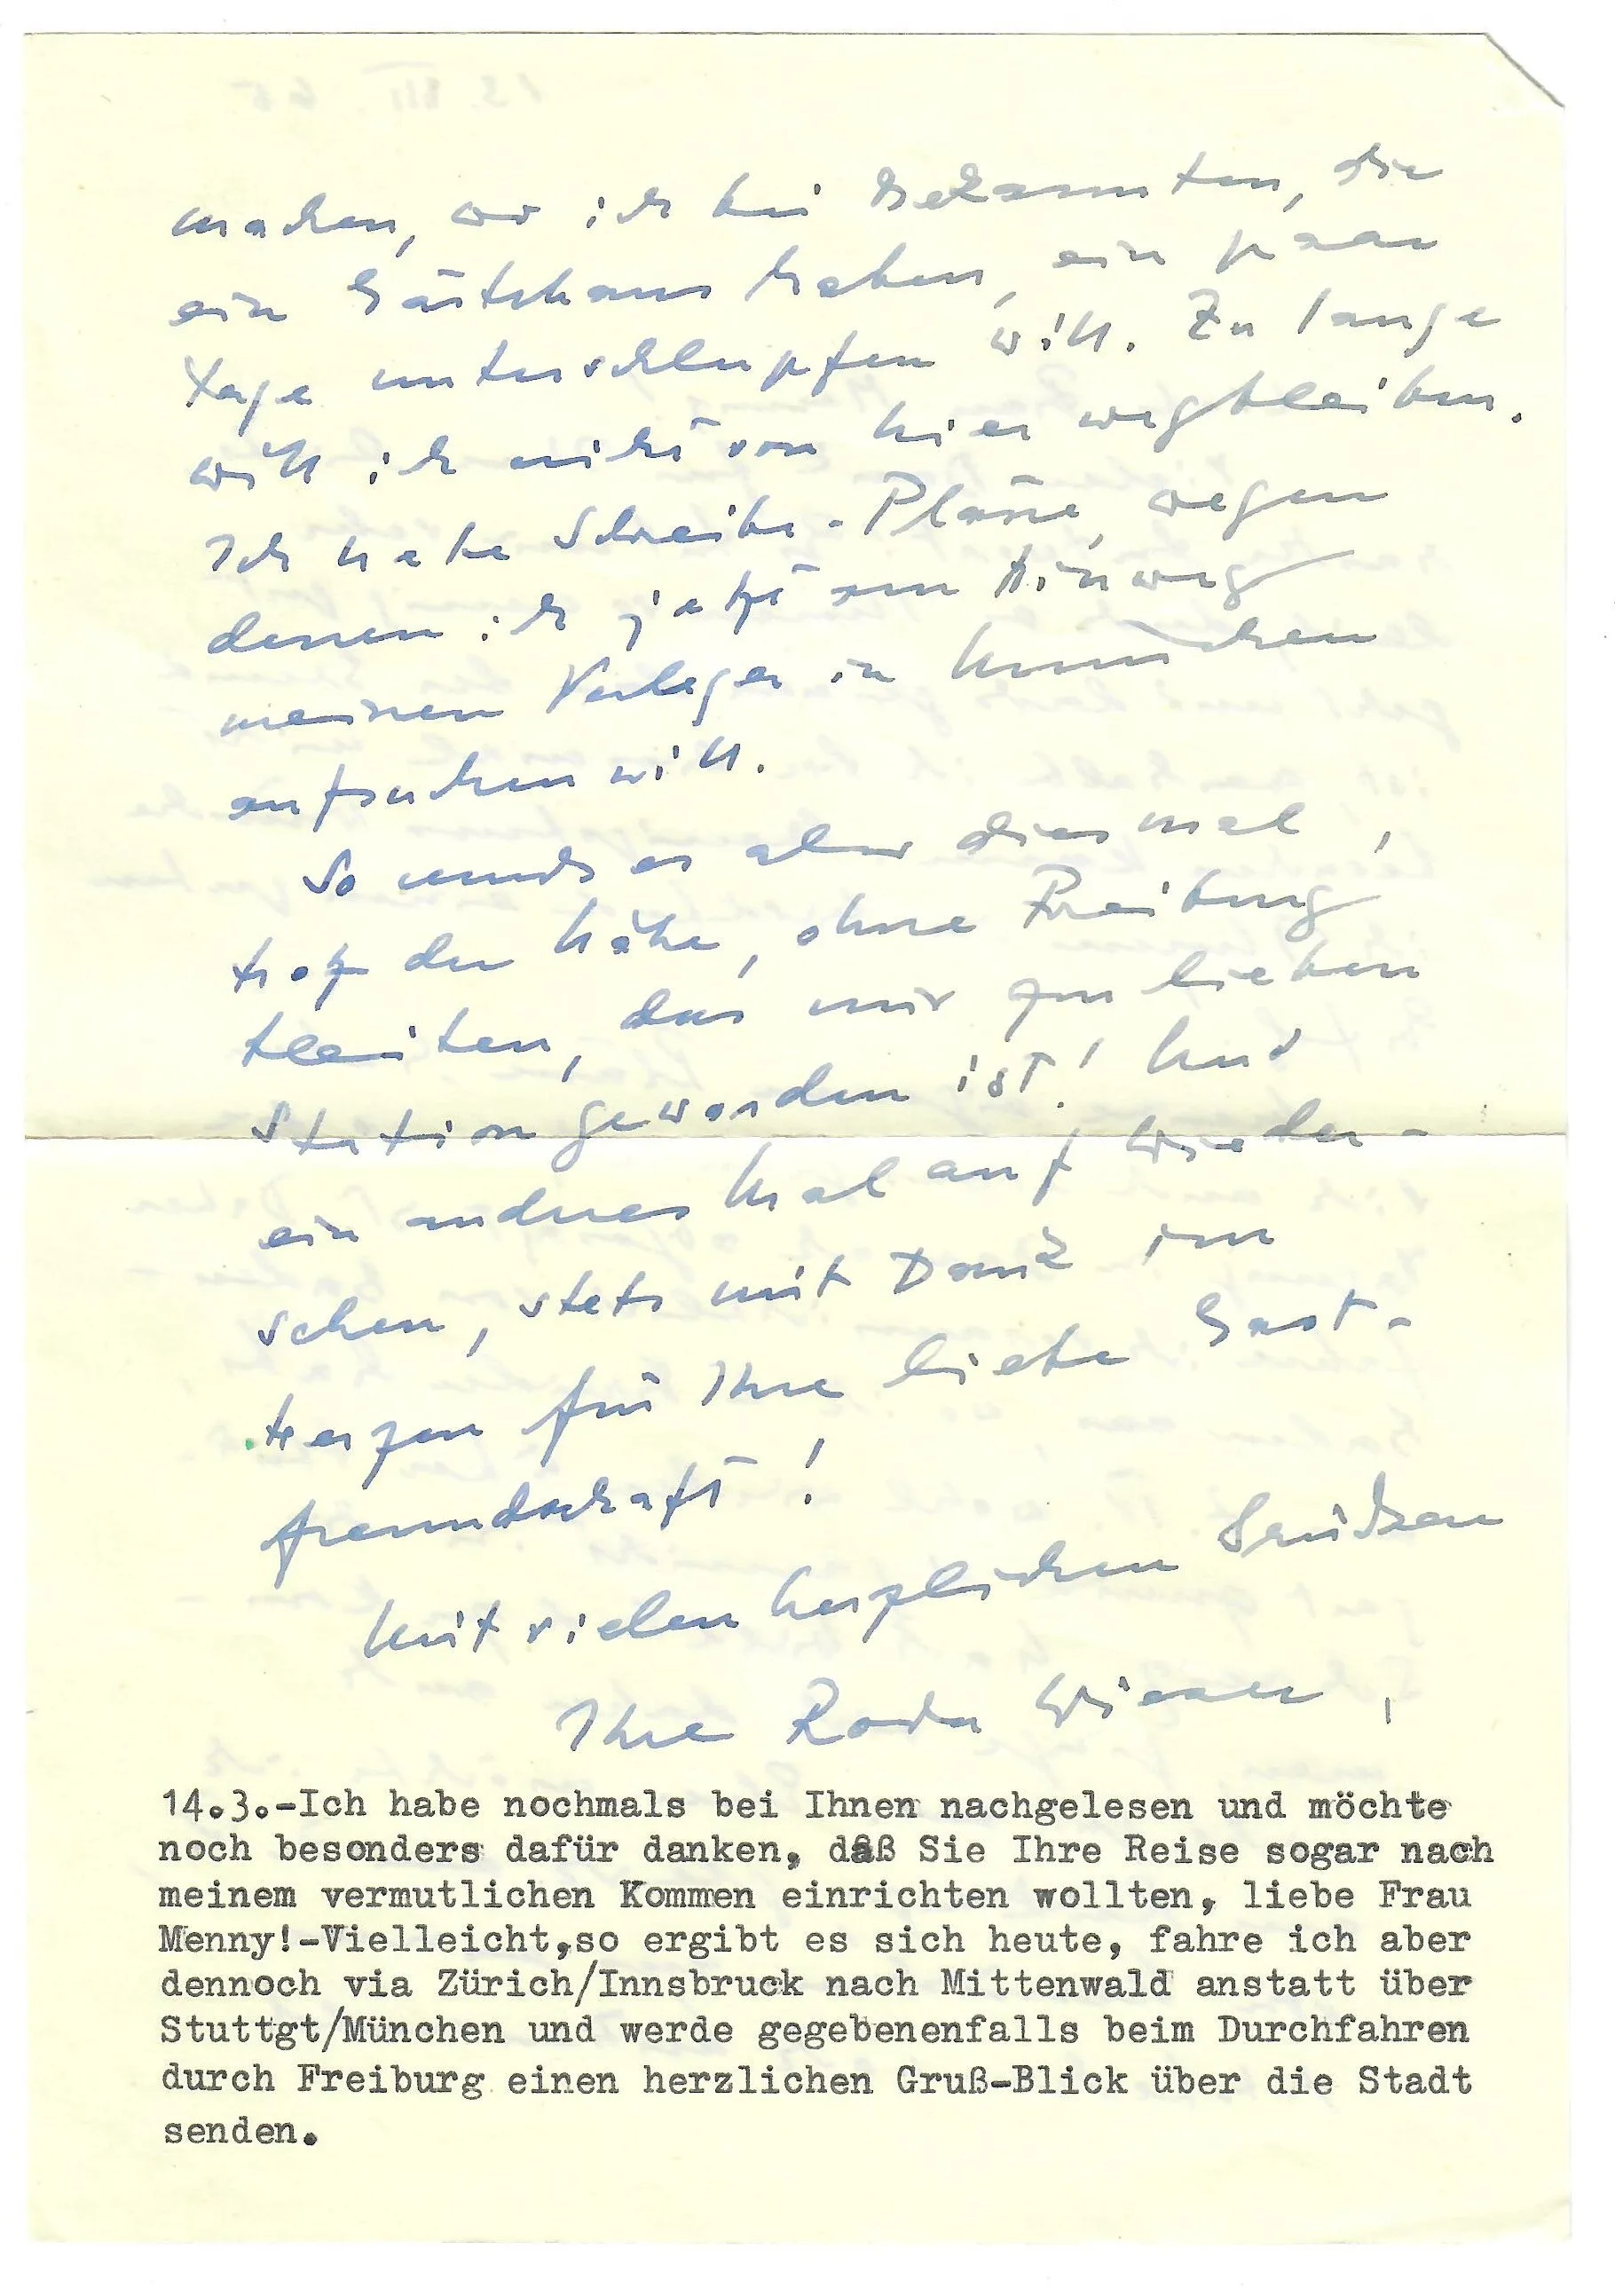 machen, wo ich bei Bekannten, die
ein Gästehaus haben, ein paar
Tage unterschlupfen will. Zu lange
will ich nicht von hier wegbleiben.
Ich habe Schreibe-Pläne, wegen
denen ich jetzt am Hinweg
meinen Verleger in München
aufsuchen will.
So muss es aber diesmal,
trotz der Nähe, ohne Freiburg
bleiben, das mir zur lieben
Station geworden ist! Auf
ein andres Mal auf Wieder-
sehen, stets mit Dank im
Herzen für Ihre liebe Gast-
freundschaft!
Mit vielen herzlichen Grüßen
Ihre Roda Wieser,
14.3.-Ich habe nochmals bei Ihnen nachgelesen und möchte
noch besonders dafür danken, daß Sie Ihre Reise sogar nach
meinem vermutlichen Kommen einrichten wollten, liebe Frau
Menny!-Vielleicht,so ergibt es sich heute, fahre ich aber
dennoch via Zürich/Innsbruck nach Mittenwald anstatt über
Stuttgt/München und werde gegebenenfalls beim Durchfahren
durch Freiburg einen herzlichen Gruß-Blick über die Stadt
senden.